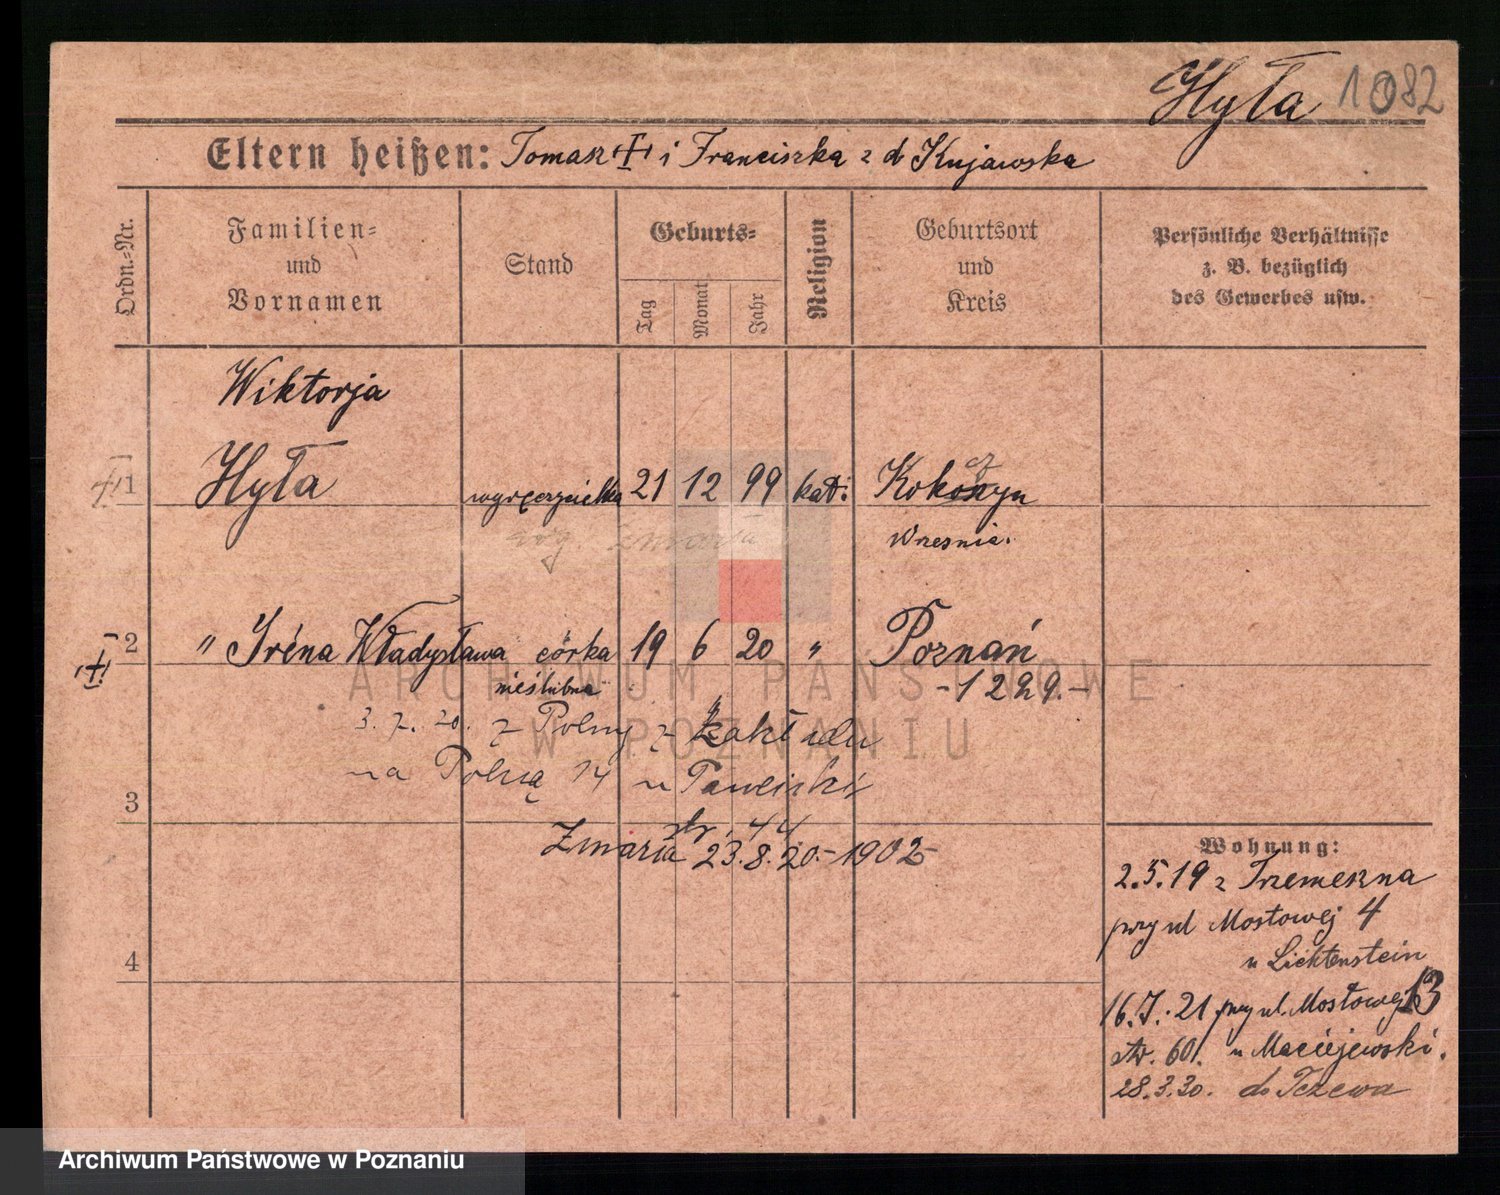 Hyła 1082
Eltern heißen: Tomasz + i Franciszka z d Kujawska
Ordn.-Nr.
Familien- und Vornamen
Stand
Geburts-
Tag Monat Jahr
Religion
Geburtsort und Kreis
Persönliche Verhältnisse z. B. bezüglich des Gewerbes usw.
Wiktorja
1 Hyła wyręczycielka 21 12 99 kat: Kokoszyn
cz
Wresnia.
zmarła
2 " Iréna Władysława córka 19 6 20 " Poznań
nieślubna -1229.-
3. 7. 20. z Polnej z Zakładu
na Polną 14 u Pawlicki
3
str. 44
Zmarła 23.8.20.- 1902-
4
Wohnung:
2.5.19 z Trzemeszna
przy ul Mostowej 4
u Lichtenstein
16.7.21 przy ul. Mostowej 13
str. 60. u Maciejewski.
28.3.30. do Tczewa
ARCHIWUM PAŃSTWOWE
W POZNANIU
Archiwum Państwowe w Poznaniu